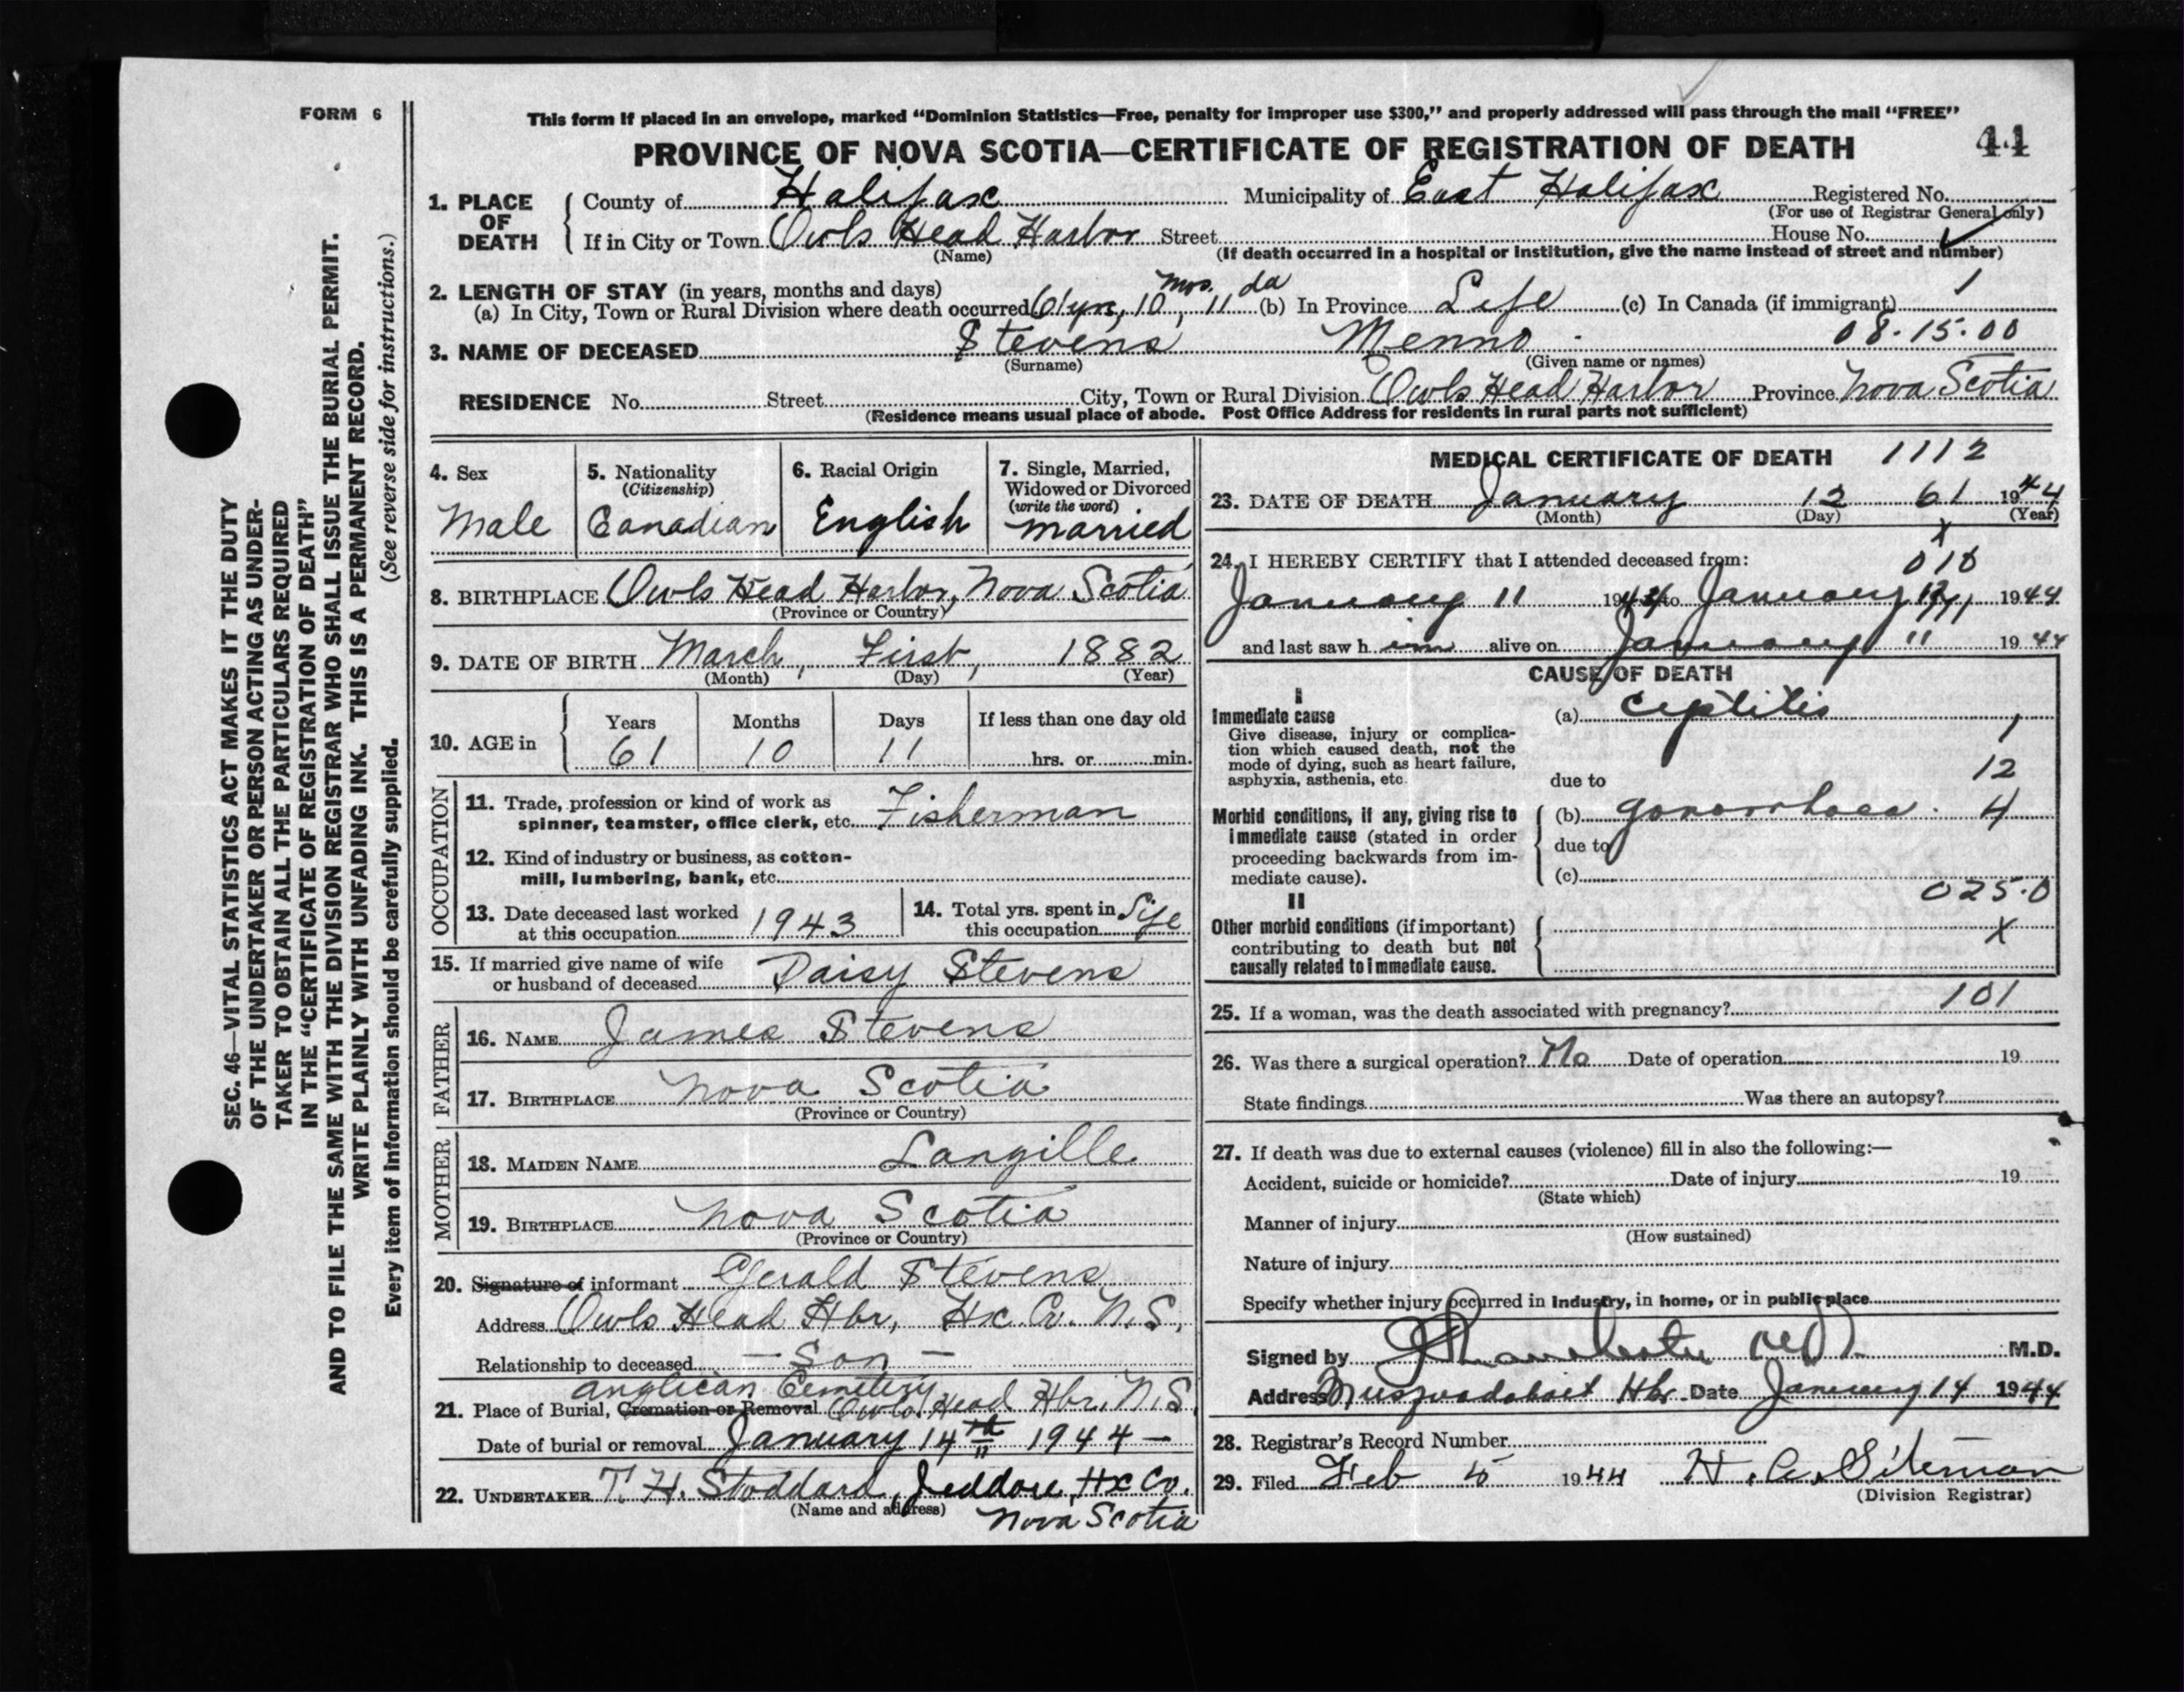 FORM 6
This form if placed in an envelope, marked "Dominion Statistics—Free, penalty for improper use $300," and properly addressed will pass through the mail "FREE"
PROVINCE OF NOVA SCOTIA—CERTIFICATE OF REGISTRATION OF DEATH 44
1. PLACE OF DEATH
County of Halifax Municipality of East Halifax Registered No.
(For use of Registrar General only)
If in City or Town Owls Head Harbor Street House No.
(Name) (If death occurred in a hospital or institution, give the name instead of street and number)
2. LENGTH OF STAY (in years, months and days)
(a) In City, Town or Rural Division where death occurred 61 yrs, 10 mos, 11 da (b) In Province Life (c) In Canada (if immigrant) 1
3. NAME OF DECEASED Stevens Menno 08-15-00
(Surname) (Given name or names)
RESIDENCE No. Street City, Town or Rural Division Owls Head Harbor Province Nova Scotia
(Residence means usual place of abode. Post Office Address for residents in rural parts not sufficient)
4. Sex Male
5. Nationality (Citizenship) Canadian
6. Racial Origin English
7. Single, Married, Widowed or Divorced (write the word) married
8. BIRTHPLACE Owls Head Harbor, Nova Scotia
(Province or Country)
9. DATE OF BIRTH March, First, 1882
(Month) (Day) (Year)
10. AGE in Years 61 Months 10 Days 11 If less than one day old hrs. or min.
OCCUPATION
11. Trade, profession or kind of work as spinner, teamster, office clerk, etc. Fisherman
12. Kind of industry or business, as cotton-mill, lumbering, bank, etc.
13. Date deceased last worked at this occupation 1943
14. Total yrs. spent in this occupation Life
15. If married give name of wife or husband of deceased Daisy Stevens
FATHER
16. NAME James Stevens
17. BIRTHPLACE Nova Scotia
(Province or Country)
MOTHER
18. MAIDEN NAME Langille
19. BIRTHPLACE Nova Scotia
(Province or Country)
20. Signature of informant Gerald Stevens
Address Owls Head Hbr, Hx Co. N.S,
Relationship to deceased — Son —
21. Place of Burial, Cremation or Removal Anglican Cemetery Owls Head Hbr, N.S.
Date of burial or removal January 14th 1944 —
22. UNDERTAKER T. H. Stoddard, Jeddore, Hx Co.
(Name and address) Nova Scotia
MEDICAL CERTIFICATE OF DEATH 1112
23. DATE OF DEATH January 12 61 1944
(Month) (Day) (Year)
x
24. I HEREBY CERTIFY that I attended deceased from: 010
January 11 1944 to January 12 1944
and last saw h im alive on January 11 1944
CAUSE OF DEATH
I
Immediate cause (a)
Give disease, injury or complication which caused death, not the mode of dying, such as heart failure, asphyxia, asthenia, etc 1
due to 12
Morbid conditions, if any, giving rise to immediate cause (stated in order proceeding backwards from immediate cause). (b) gonorrhoea. 4
due to
(c)
025.0
II
Other morbid conditions (if important) contributing to death but not causally related to immediate cause. X
25. If a woman, was the death associated with pregnancy? 101
26. Was there a surgical operation? No Date of operation 19
State findings Was there an autopsy?
27. If death was due to external causes (violence) fill in also the following:—
Accident, suicide or homicide? Date of injury 19
(State which)
Manner of injury
(How sustained)
Nature of injury
Specify whether injury occurred in industry, in home, or in public place
Signed by M.D.
Address Musquodoboit Hbr. Date January 14 1944
28. Registrar's Record Number
29. Filed Feb 5 1944 H. A. Siteman
(Division Registrar)
SEC. 46—VITAL STATISTICS ACT MAKES IT THE DUTY
OF THE UNDERTAKER OR PERSON ACTING AS UNDER-
TAKER TO OBTAIN ALL THE PARTICULARS REQUIRED
IN THE "CERTIFICATE OF REGISTRATION OF DEATH"
AND TO FILE THE SAME WITH THE DIVISION REGISTRAR WHO SHALL ISSUE THE BURIAL PERMIT.
WRITE PLAINLY WITH UNFADING INK. THIS IS A PERMANENT RECORD.
Every item of information should be carefully supplied. (See reverse side for instructions.)